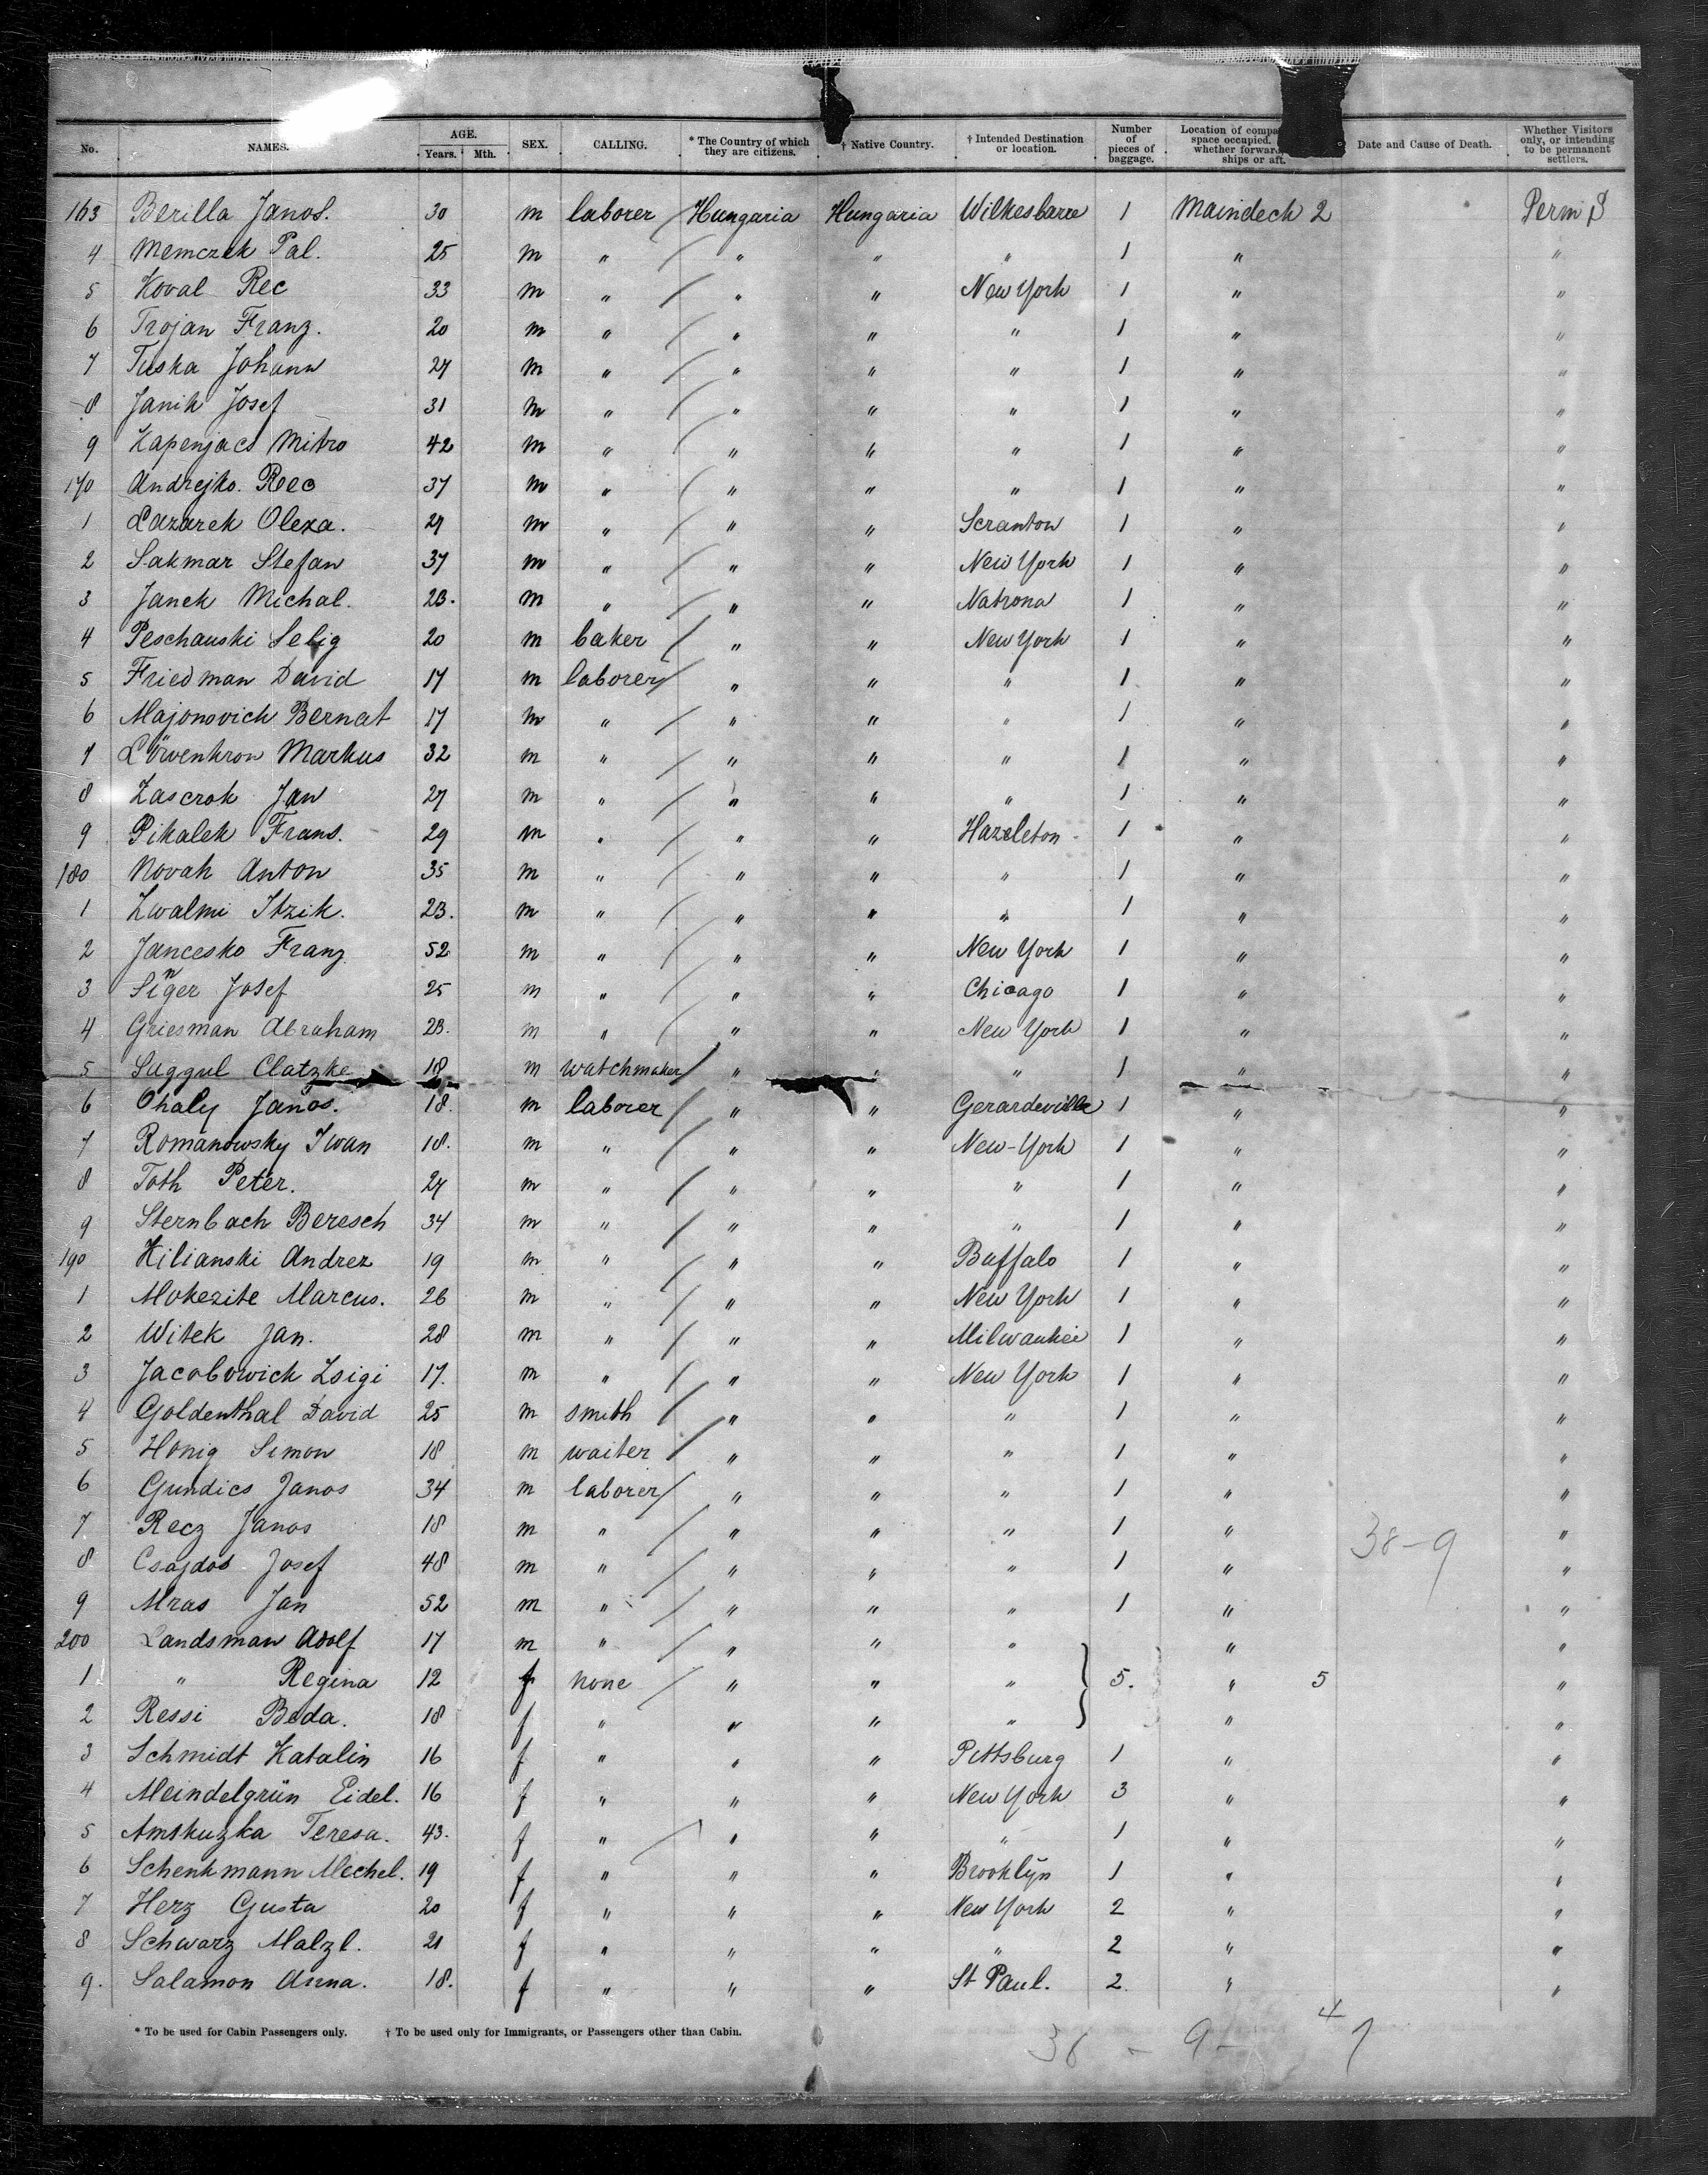 No. NAMES. AGE. Years. Mth. SEX. CALLING. * The Country of which they are citizens. † Native Country. † Intended Destination or location. Number of pieces of baggage. Location of compa space occupied. whether forwar ships or aft. Date and Cause of Death. Whether Visitors only, or intending to be permanent settlers.
163 Berilla Janos. 30 m laborer / Hungaria Hungaria Wilkesbarre 1 Maindeck 2 Perm S
4 Memczek Pal. 25 m " / " " " 1 " "
5 Koval Rec 33 m " / " " New York 1 " "
6 Trojan Franz. 20 m " / " " " 1 " "
7 Tuska Johann 27 m " / " " " 1 " "
8 Janik Josef 31 m " / " " " 1 " "
9 Kapenjacs Mitro 42 m " / " " " 1 " "
170 Andrejko. Reco 37 m " / " " " 1 " "
1 Lazarek Olexa. 27 m " / " " Scranton 1 " "
2 Sakmar Stefan 37 m " / " " New York 1 " "
3 Janek Michal. 23. m " / " " Natrona 1 " "
4 Peschauski Selig 20 m baker / " " New York 1 " "
5 Friedman David 17 m laborer / " " " 1 " "
6 Majonovich Bernat 17 m " / " " " 1 " "
7 Löwenkron Markus 32 m " / " " " 1 " "
8 Zascrok Jan 27 m " / " " " 1 " "
9 Pikalek Frans. 29 m " / " " Hazeleton 1 " "
180 Novak Anton 35 m " / " " " 1 " "
1 Zwalmi Itzik. 23. m " / " " " 1 " "
2 Jancesko Franz 52 m " / " " New York 1 " "
3 Singer Josef 25 m " / " " Chicago 1 " "
4 Griesman Abraham 23. m " / " " New York 1 " "
5 Suggul Clatzke 18 m watchmaker / " " " 1 " "
6 Ohaly Janos. 18. m laborer / " " Gerardeville 1 " "
7 Romanowsky Iwan 18. m " / " " New-York 1 " "
8 Toth Peter. 27 m " / " " " 1 " "
9 Sternbach Beresch 34 m " / " " " 1 " "
190 Kilianski Andrez 19 m " / " " Buffalo 1 " "
1 Mokezite Marcus. 26 m " / " " New York 1 " "
2 Witek Jan. 28 m " / " " Milwaukee 1 " "
3 Jacobowich Zsigi 17. m " / " " New York 1 " "
4 Goldenthal David 25 m smith / " " " 1 " "
5 Honig Simon 18 m waiter / " " " 1 " "
6 Gundics Janos 34 m laborer / " " " 1 " "
7 Recz Janos 18 m " / " " " 1 " 38-9 "
8 Csajdos Josef 48 m " / " " " 1 " "
9 Mras Jan 52 m " / " " " 1 " "
200 Landsman Adolf 17 m " / " " " " "
1 " Regina 12 f none / " " " 5. " 5 "
2 Ressi Beda. 18 f " " " " " "
3 Schmidt Katalin 16 f " " " Pittsburg 1 " "
4 Meindelgrün Eidel. 16 f " " " New York 3 " "
5 Amskuzka Teresa. 43. f " / " " " 1 " "
6 Schenkmann Mechel. 19 f " " " Brooklyn 1 " "
7 Herz Gusta 20 f " " " New York 2 " "
8 Schwarz Malzl. 21 f " " " " 2 " "
9. Salamon Anna. 18. f " " " St Paul. 2 " "
* To be used for Cabin Passengers only. † To be used only for Immigrants, or Passengers other than Cabin.
38 - 9 - 4 7